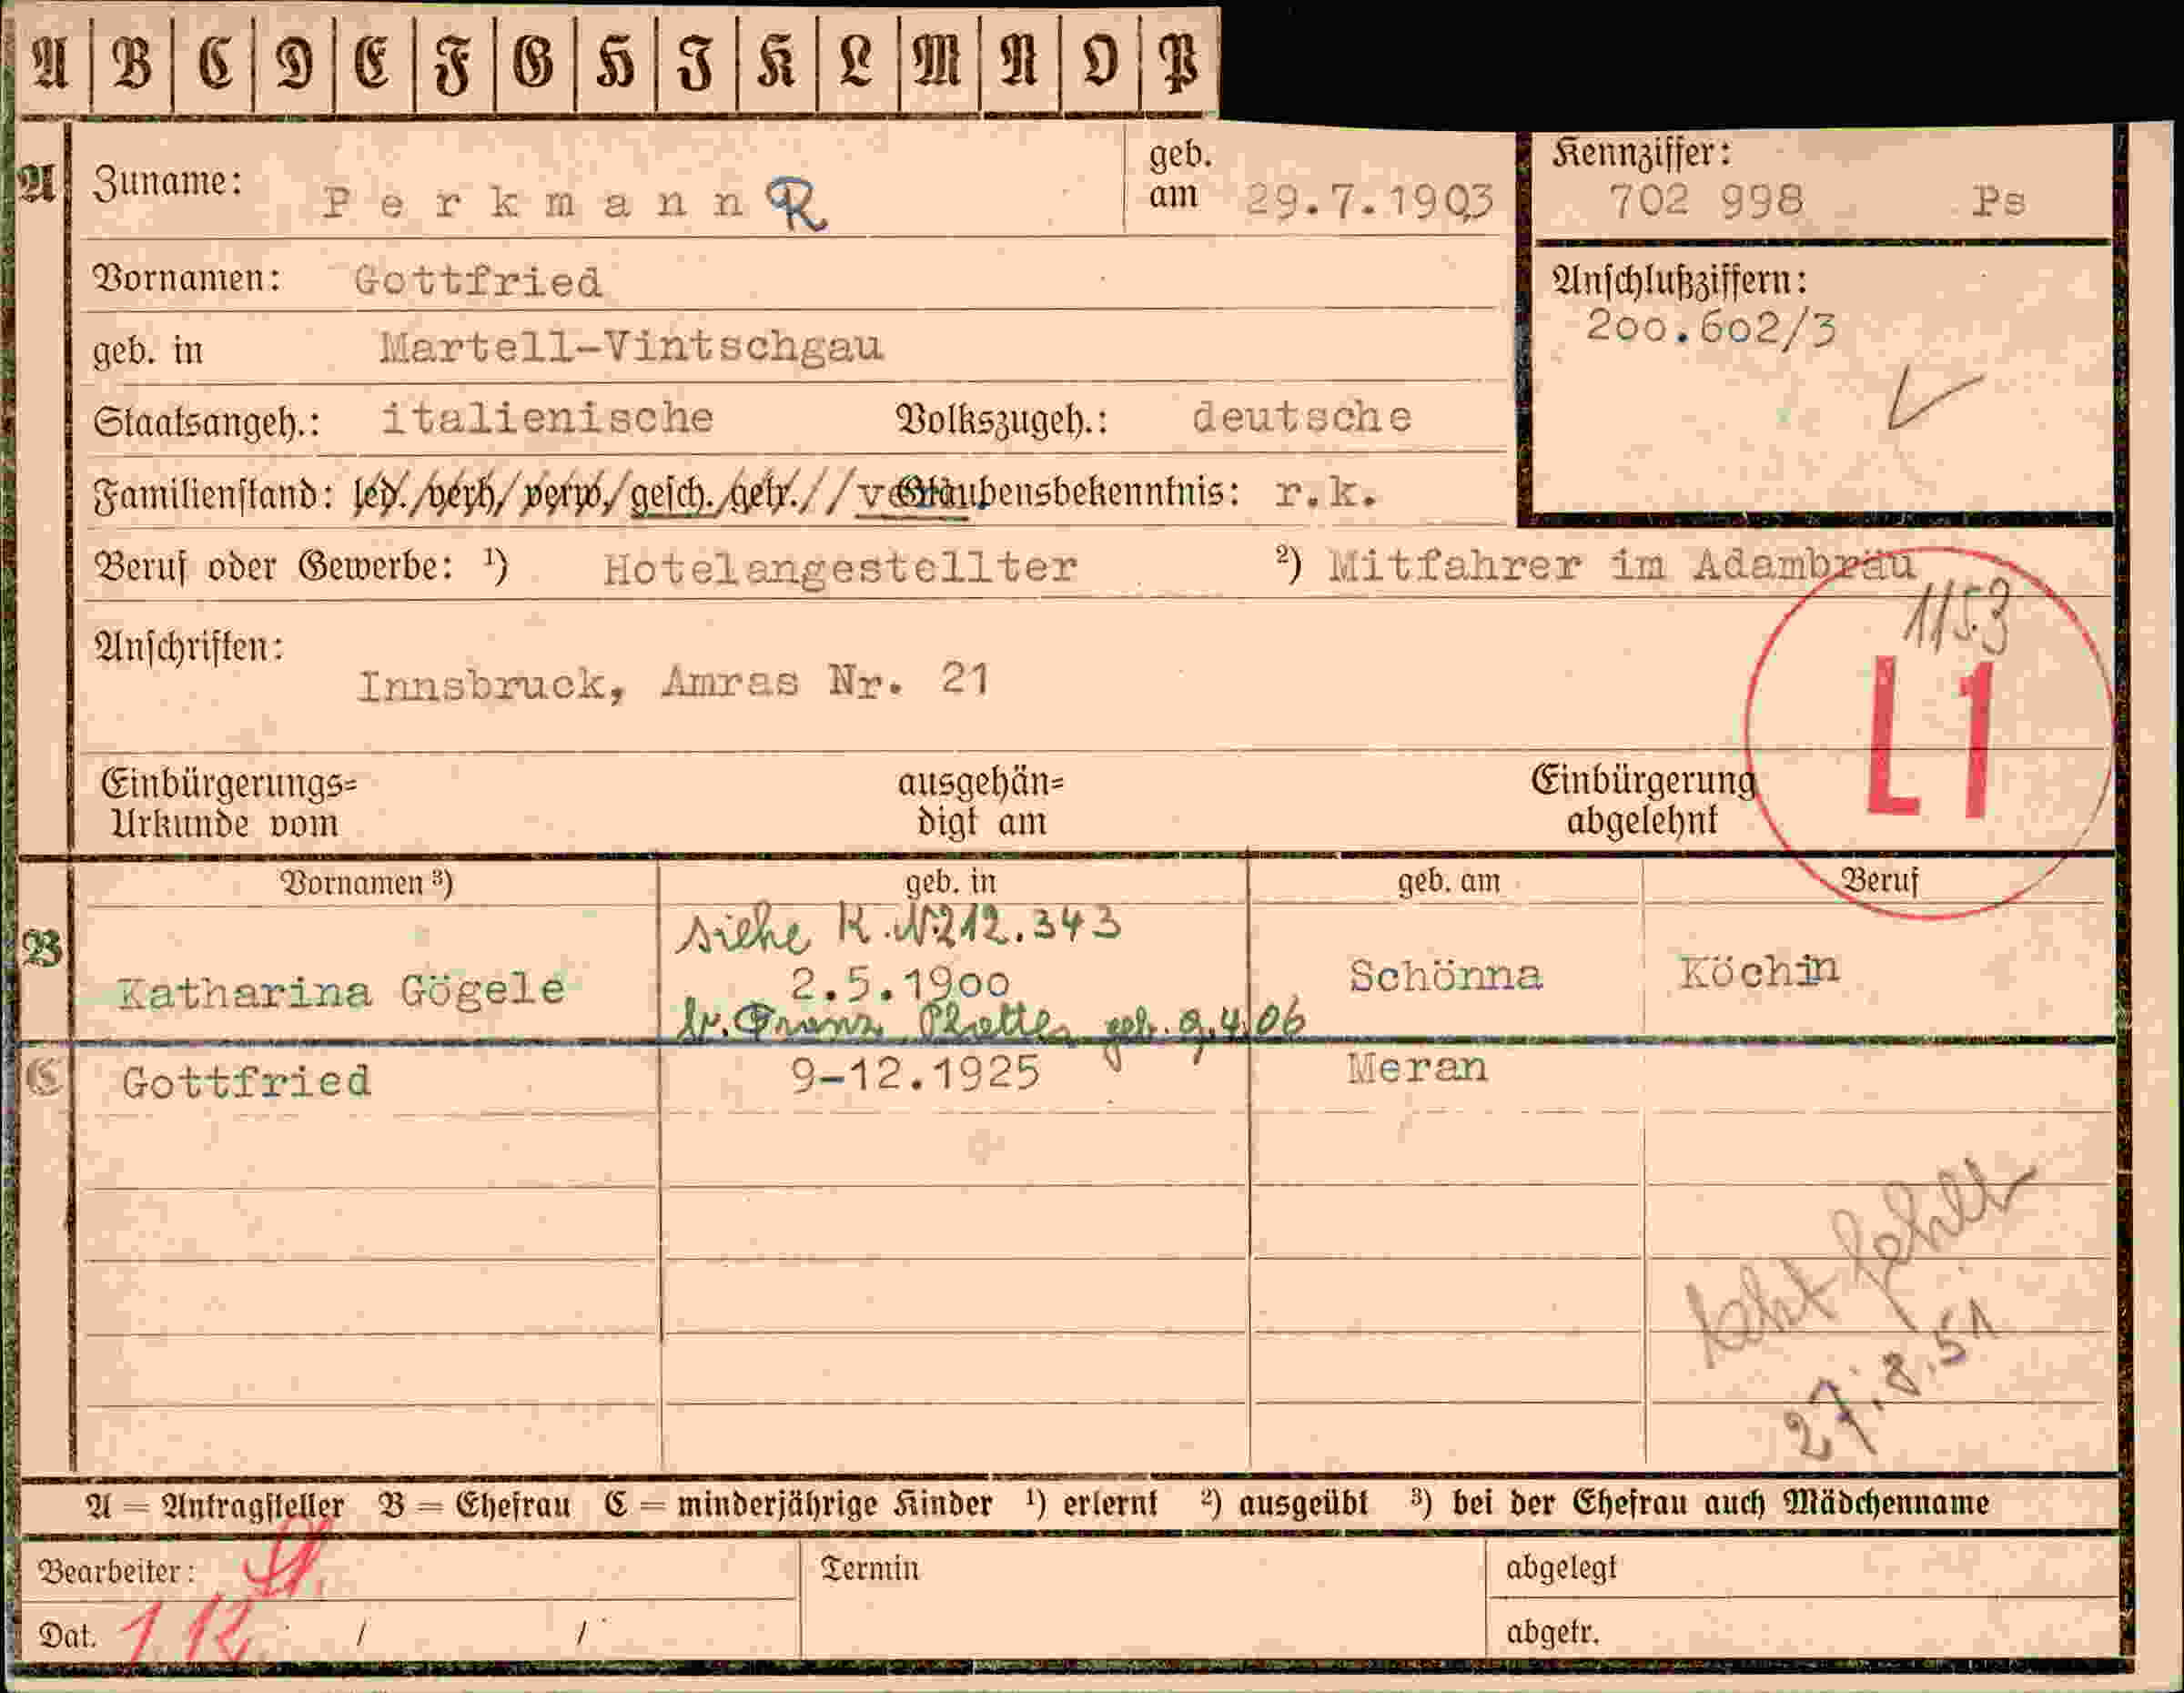 A B C D E F G H I K L M N O P
A Zuname: Perkmann R geb. am 29.7.1903 Kennziffer: 702 998 Ps
Vornamen: Gottfried Anschlußziffern: 200.602/3
geb. in Martell-Vintschgau
Staatsangeh.: italienische Volkszugeh.: deutsche
Familienstand: led./verh/verw./gesch./getr.// Glaubensbekenntnis: r.k.
Beruf oder Gewerbe: ¹) Hotelangestellter ²) Mitfahrer im Adambräu
1153
Anschriften:
Innsbruck, Amras Nr. 21
L1
Einbürgerungs= ausgehän= Einbürgerung
Urkunde vom digt am abgelehnt
Vornamen ³) geb. in geb. am Beruf
siehe K.N.212.343
B Katharina Gögele 2.5.1900 Schönna Köchin
Franz geb. 9.4.06
C Gottfried 9-12.1925 Meran
Akt fehlt
27.8.51
A = Antragsteller B = Ehefrau C = minderjährige Kinder ¹) erlernt ²) ausgeübt ³) bei der Ehefrau auch Mädchenname
Bearbeiter: Termin abgelegt
Dat. 1 12 / / abgetr.